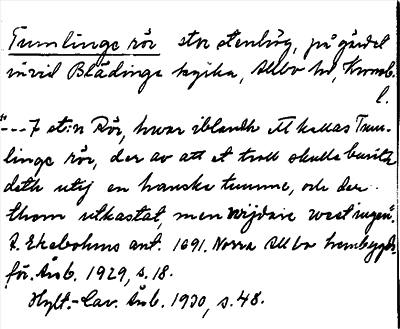 Tumlinge rör stor stenhög, på gärdet
invid Blädinge kyrka, Allbo hd, Kronob.
l.
"--- 7 st:n Rör, hwar iblandh Et kallas Tum-
linge rör, der av att et troll skulle burit
deth utij en hanske tumme, och der
thom utkastat, men wijdare west ingen".
P. Ekebohms ant. 1691. Norra Allbo hembygds-
för. Årsb. 1929, s. 18.
Hylt.-Cav. Årsb. 1930, s. 48.